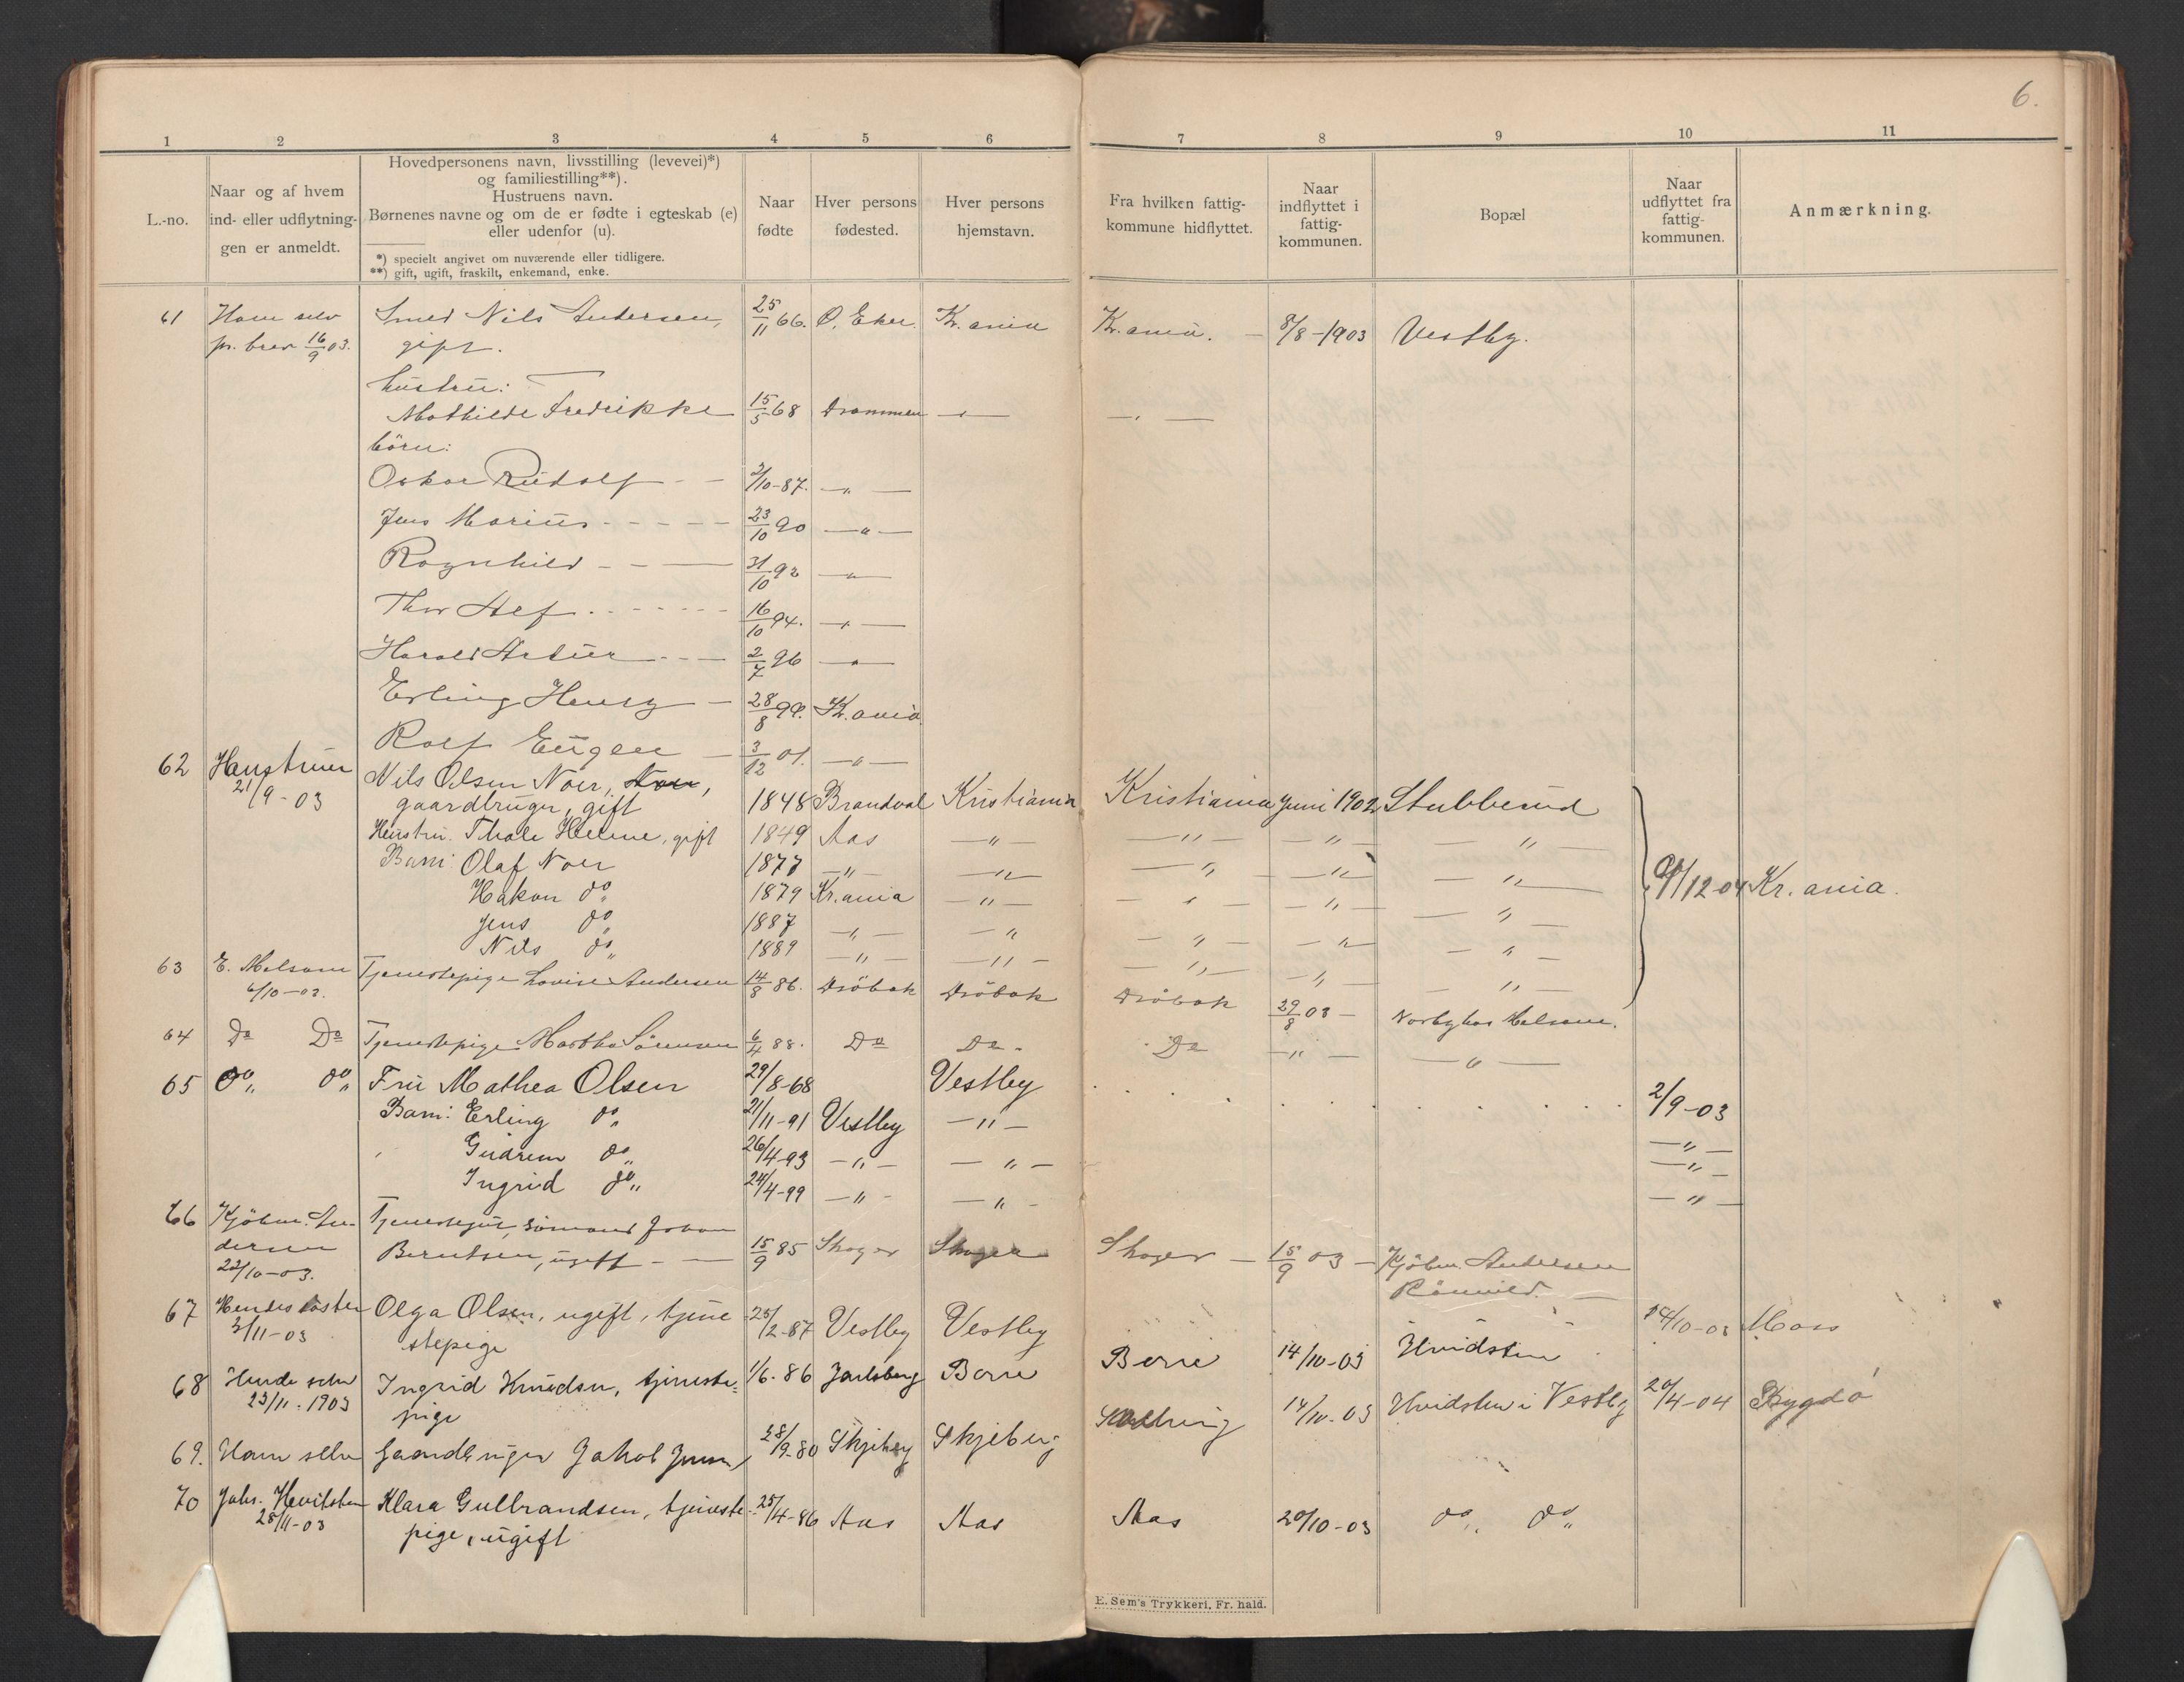 6.
1 2 3 4 5 6 7 8 9 10 11
L.-no.
Naar og af hvem
ind- eller udflytnin-
gen er anmeldt.
Hovedpersonens navn, livsstilling (levevei)*)
og familiestilling**).
Hustruens navn.
Børnenes navne og om de er fødte i egteskab (e)
eller udenfor (u).
*) specielt angivet om nuværende eller tidligere.
**) gift, ugift, fraskilt, enkemand, enke.
Naar
fødte
Hver persons
fødested.
Hver persons
hjemstavn.
Fra hvilken fattig-
kommune hidflyttet.
Naar
indflyttet i
fattig-
kommunen.
Bopæl
Naar
udflyttet fra
fattig-
kommunen.
Anmærkning.
61 Ham selv Smed Nils Andersen, 25/11 66. Ø. Eker Kr.ania Kr.ania. — 8/8-1903 Vestby.
pr. brev 16/9 03. gift.
hustru:
Mathilde Fredrikke 15/5 68 Drammen —"— —"—
börn:
Oskar Rudolf - - 2/10-87. —"—
Jens Marius - - - - - 23/10 90 —"—
Ragnhild - - — 31/10 92 —"—
Thor Alf - - - - - - 16/10 94. —"—
Harald Artur - - - 2/7 96 —"—
Erling Henry — 28/8 99. Kr.ania
Rolf Eugen — 3/12 01. —"—
62 Hustruen Nils Olsen Noer,
21/9-03 gaardbruger, gift 1848 Brandval Kristiania Kristiania Juni 1902 Stubberud
Hustru: Thale Helene, gift 1849 Aas —"— —"— —"— —"—
Barn: Olaf Noer 1877 —"— —"— —"— —"— —"—
Hakon do 1879 Kr.ania —"— —"— —"— —"— /12 04 Kr.ania.
Jens do 1887 —"— —"— —"— —"— —"—
Nils do 1889 —"— —"— —"— —"— —"—
63 E. Melsom Tjenestepige Lovise Andersen 14/8 86. Dröbak Dröbak Dröbak 29/8 03 — Norbybas Melsom.
6/10-03.
64 Do Do Tjenestepige Martha Sörensen 6/4 88. Do Do - Do —"— —"—
65 do do Fru Mathea Olsen 29/8-68 Vestby . . . . . . . . 2/9-03
Barn: Erling do 21/11-91 Vestby —"— —"—
Gudrun do 26/4-93 —"— —"— —"—
Ingrid do 24/4-99 —"— —"— —"—
66 Kjöbm. An- Tjenestegut, sömand Johan
dersen Berntsen, ugift — — 15/9 85 Skoger Skoger Skoger — 15/9 03 — Kjöbm. Andersen
22/10-03.
67 Hendes söster Olga Olsen, ugift, tjene- 25/2-87 Vestby Vestby /10-03 Moss
3/11-03 stepige
68 Hende selv Ingrid Knudsen, tjeneste- 1/6-86 Jarlsberg Borre Borre 14/10-03 Hvidsten 20/4-04 Bygdö
23/11-1903 pige
69. Ham selv Gaardbruger Jakob Jensen 28/9-80 Skjeberg Skjeberg 14/10-03 Hvidsten i Vestby
70 Johs. Hvitsten Klara Gulbrandsen, tjeneste- 25/4-86 Aas Aas Aas 20/10-03 do do
28/11-03 pige, ugift
E. Sem's Trykkeri, Fr. hald.